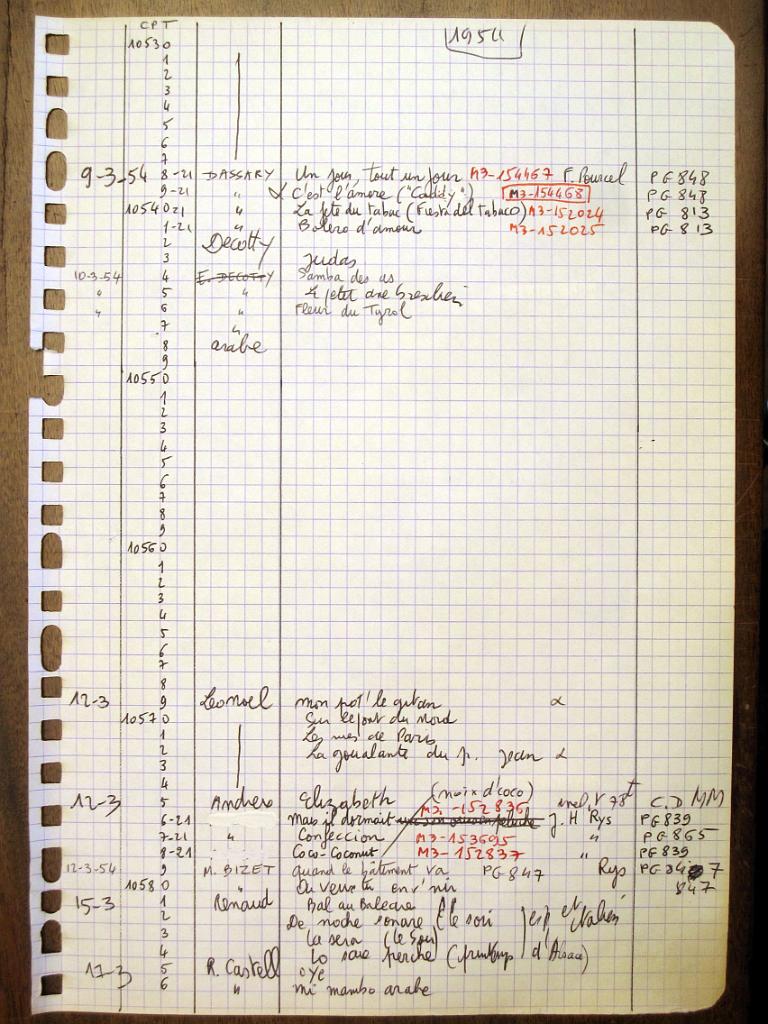 CPT
1954
10530
1
2
3
4
5
6
7
9-3-54 8-21 DASSARY Un jour, tout un jour M3-154467 F. Pourcel PG 848
9-21 " α C'est l'amore ("Caddy") M3-154468 PG 848
10540 21 " La fete du tabac (Fiesta del tabaco) M3-152024 PG 813
1-21 " Bolero d'amour M3-152025 PG 813
2 Decotty
3 Judas
10-3-54 4 E. DECOTTY Samba des as
" 5 " Le petit âne
" 6 " Fleur du Tyrol
7 "
8 arabe
9
10550
1
2
3
4
5
6
7
8
9
10560
1
2
3
4
5
6
7
8
12-3 9 Leonoel mon pot' le gitan α
10570 Sur le pont du Nord
1 Les rues de Paris
2 La goualante du p. Jean α
3
4
12-3 5 Andrex Elizabeth (noix d'coco) 78t C.D MM
6-21 Mais il dormait M3-152836 J.H Rys PG 839
7-21 " Confection M3-153695 " PG 865
8-21 Coco-Coconut M3-152837 " PG 839
12-3-54 9 M. BIZET quand le bâtiment va PG 847 Rys PG 847
10580 " Ou veux tu on v'nir 847
15-3 1 Renaud Bal au Baleare
2 De noche sonare (le soir
3 La sera (le Soir)
4 Lo sai perche (printemps d'Alsace)
17-3 5 R. Castell oye
6 " mi mambo arabe